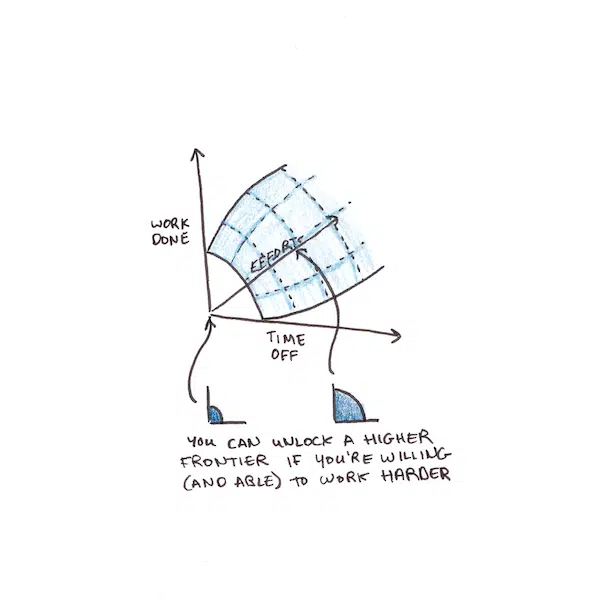 WORK
DONE
EFFORTS
TIME
OFF
YOU CAN UNLOCK A HIGHER
FRONTIER IF YOU'RE WILLING
(AND ABLE) TO WORK HARDER